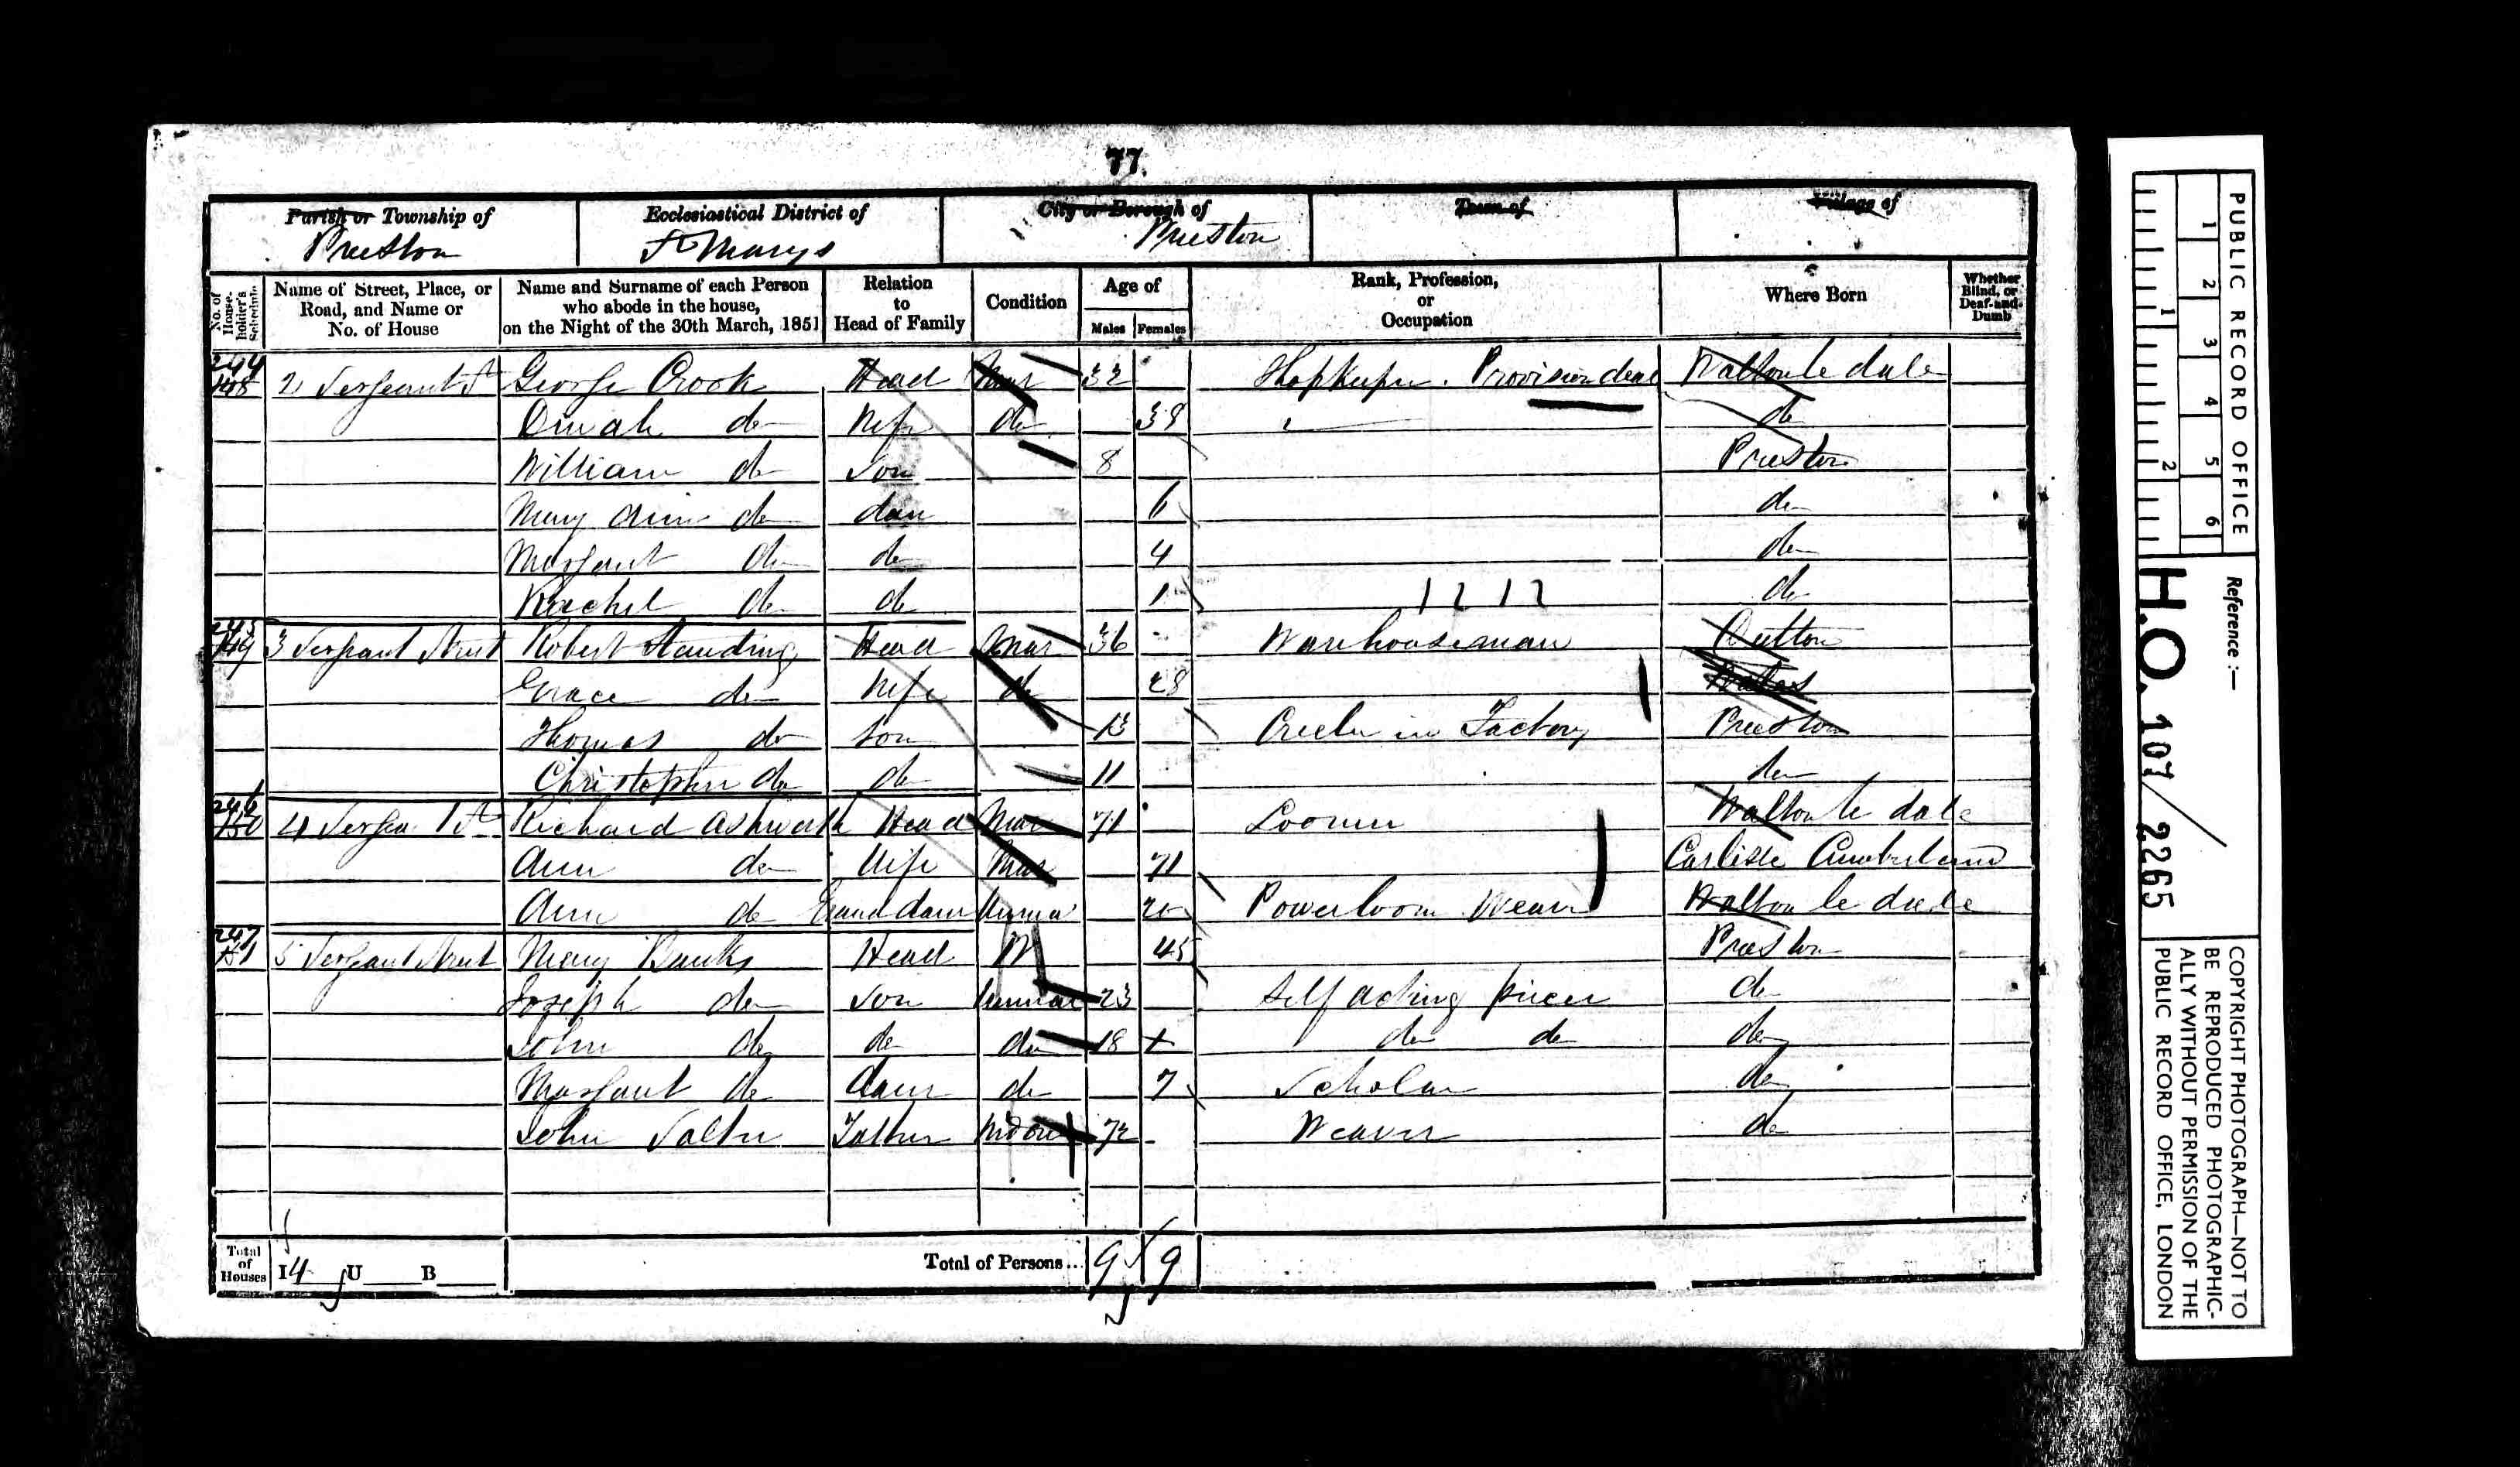 77.
Parish or Township of
Preston
Ecclesiastical District of
St Marys
City or Borough of
Preston
Town of
Village of
No. of House-holder's Schedule
Name of Street, Place, or Road, and Name or No. of House
Name and Surname of each Person who abode in the house, on the Night of the 30th March, 1851
Relation to Head of Family
Condition
Age of
Males Females
Rank, Profession, or Occupation
Where Born
Whether Blind, or Deaf-and-Dumb
244 148 2 Sergeant St George Crook Head Mar 32 Shopkeeper. Provision deal Walton le dale
Dinah do Wife do 38 do
William do Son 8 Preston
Mary Ann do dau 6 do
Margaret do do 4 do
Rachel do do 1 1212 do
245 149 3 Sergeant Street Robert Standing Head Mar 36 Warehouseman
Grace do Wife do 28
Thomas do Son 13 Creeler in Factory Preston
Christopher do do 11 do
246 150 4 St Richard Ashworth Head Mar 71 Loomer Walton le dale
Ann do Wife Mar 71 Carlisle Cumberland
Ann do Grand daur Unmar Powerloom Weaver Walton le dale
247 151 5 Sergeant Street Mary Banks Head W 45 Preston
Joseph do Son Unmar 23 Self acting piecer do
John do do do 18 x do do do
Margaret do daur do 7 Scholar do
John Salter Father Widower 72 Weaver do
Total of Houses I 4 U B
Total of Persons... 9 9
PUBLIC RECORD OFFICE
1 2 3 4 5 6
1 2
Reference :-
H.O. 107/2265
COPYRIGHT PHOTOGRAPH—NOT TO
BE REPRODUCED PHOTOGRAPHIC-
ALLY WITHOUT PERMISSION OF THE
PUBLIC RECORD OFFICE, LONDON